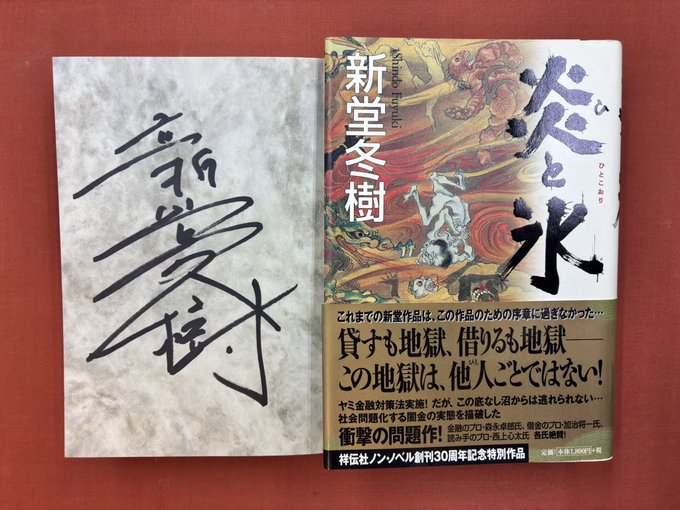 新堂冬樹
新堂冬樹
Shindo Fuyuki
炎と氷
ひ
ひとこおり
これまでの新堂作品は、この作品のための序章に過ぎなかった…
貸すも地獄、借りるも地獄──
この地獄は、他人ごとではない!
ひと
ヤミ金融対策法実施!だが、この底なし沼からは逃れられない…
社会問題化する闇金の実態を描破した
衝撃の問題作!
金融のプロ・森永卓郎氏、借金のプロ・加治将一氏、
読み手のプロ・西上心太氏 各氏絶賛!
祥伝社ノン・ノベル創刊30周年記念特別作品
定価:本体1,800円+税